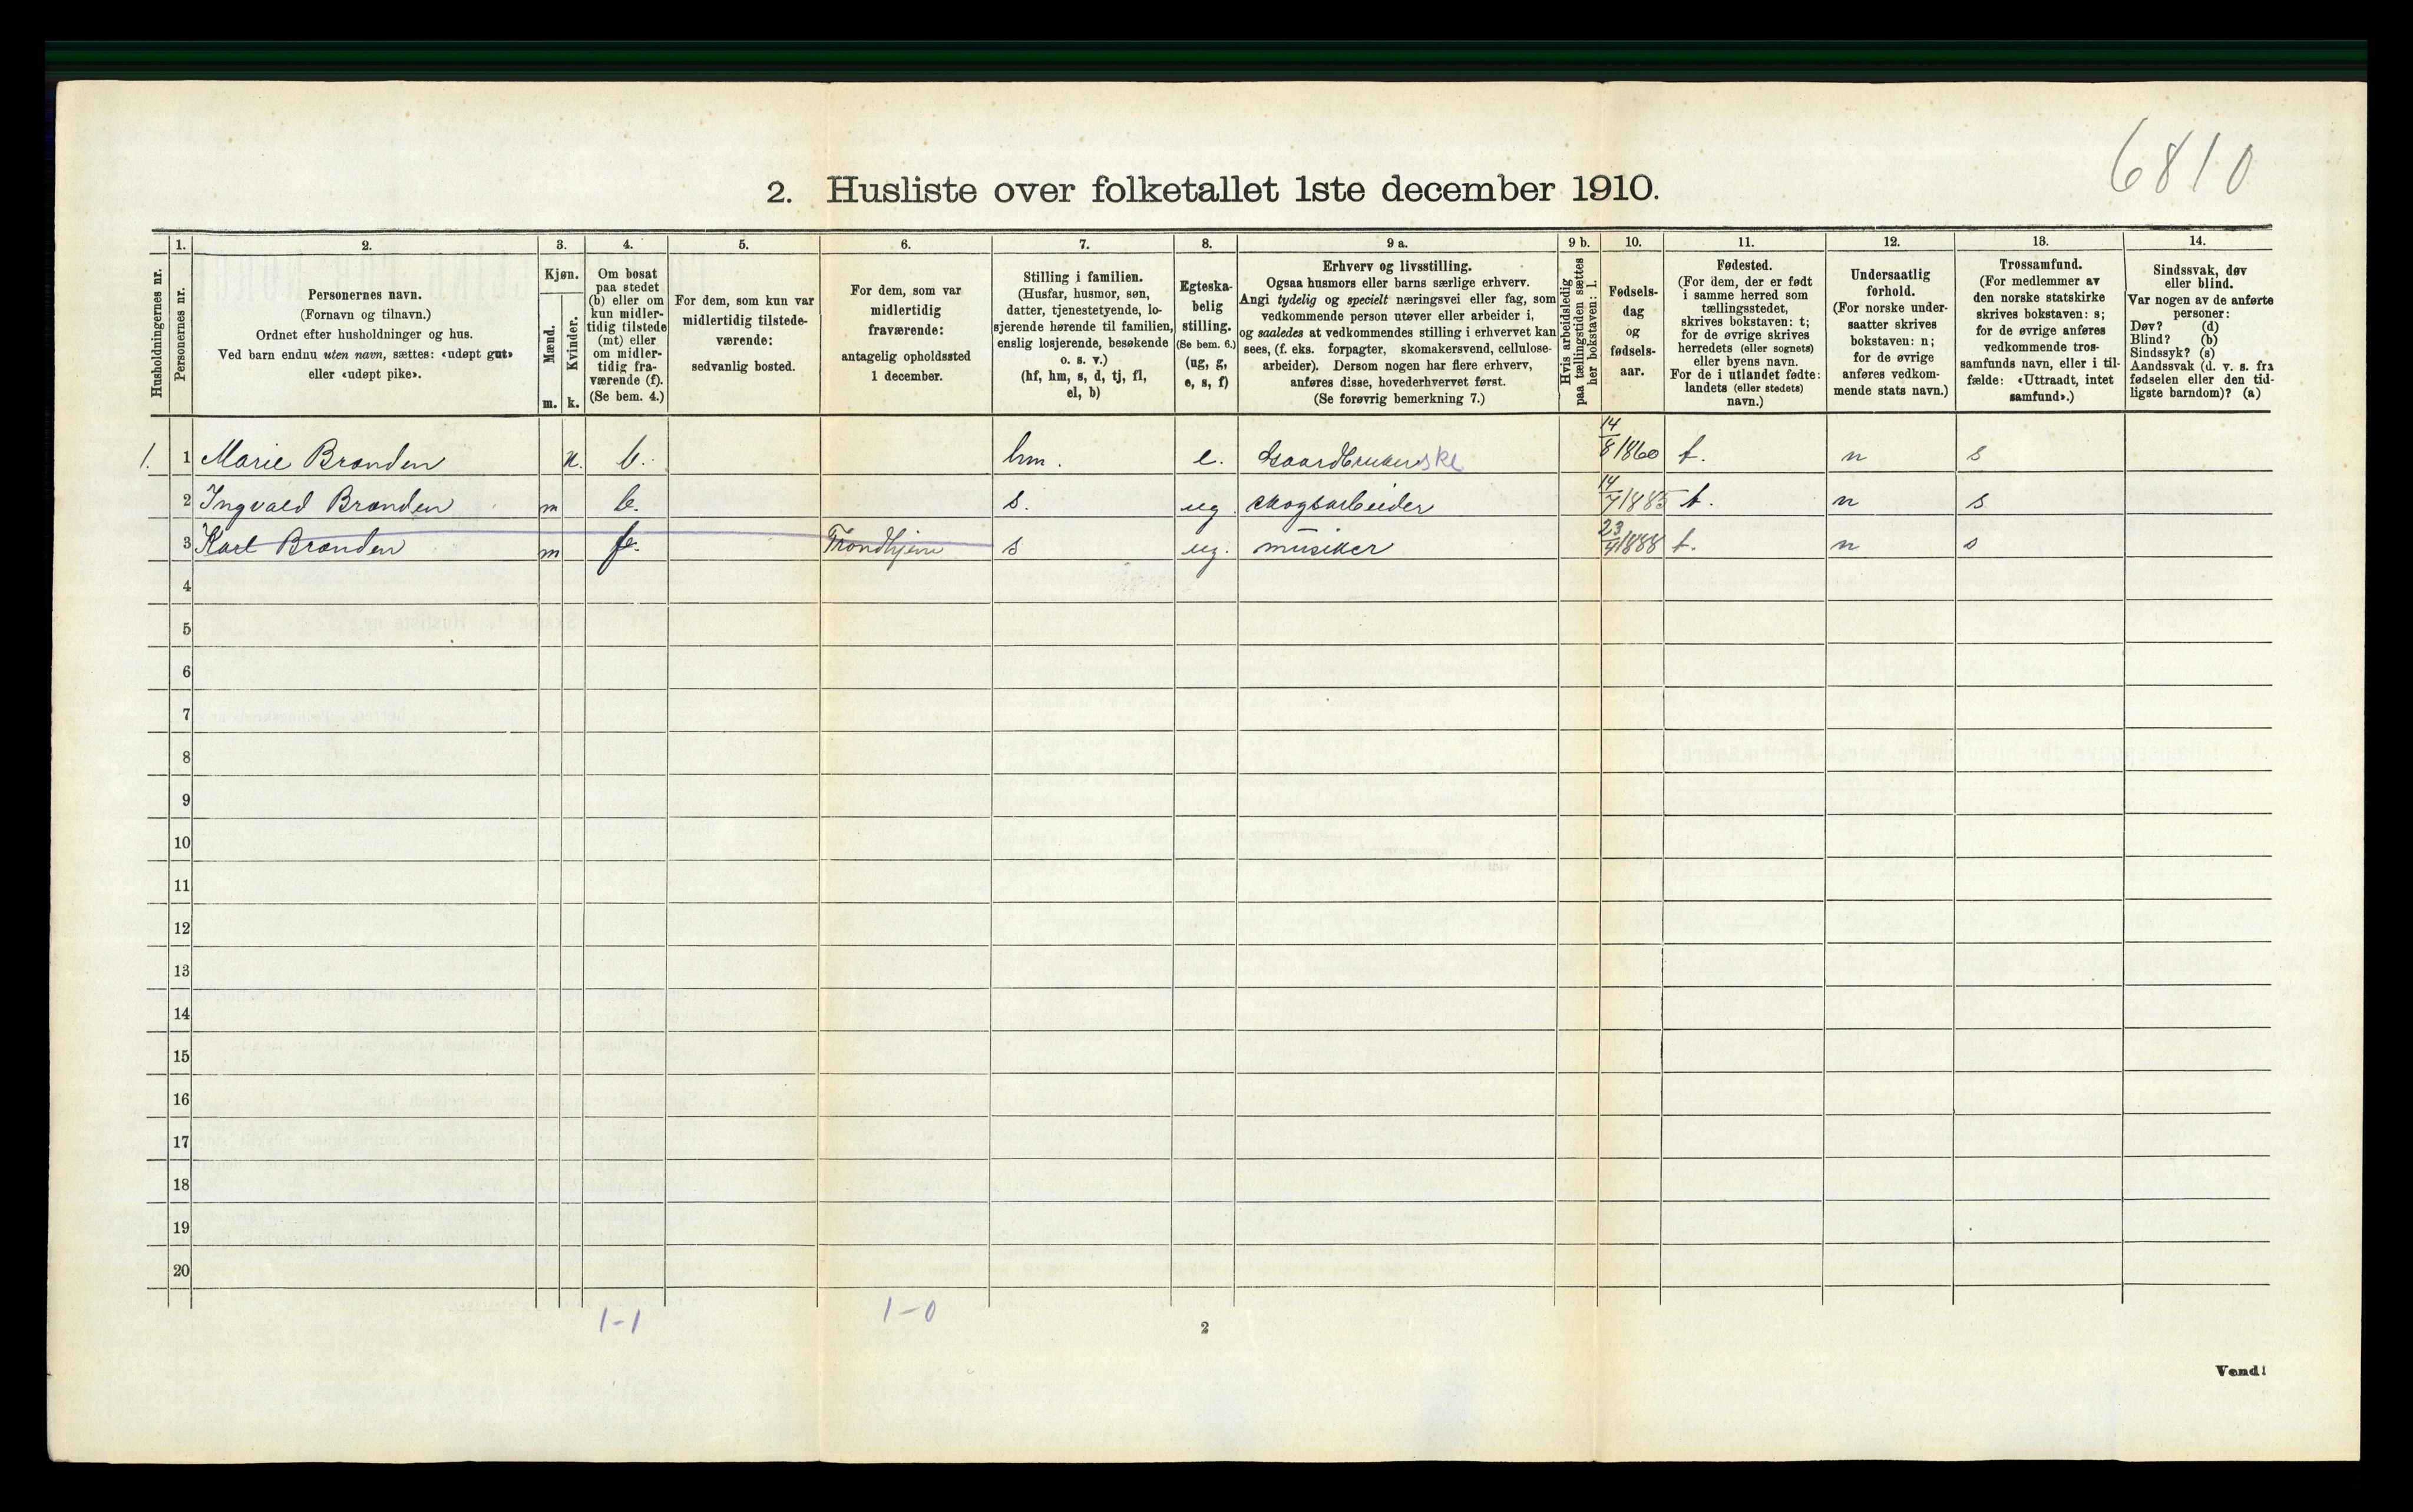 6810
2. Husliste over folketallet 1ste december 1910.
Husholdningernes nr.
1.
Personernes nr.
2.
Personernes navn.
(Fornavn og tilnavn.)
Ordnet efter husholdninger og hus.
Ved barn endnu uten navn, sættes: «udøpt gut»
eller «udøpt pike».
3.
Kjøn.
Mænd.
Kvinder.
m.
k.
4.
Om bosat
paa stedet
(b) eller om
kun midler-
tidig tilstede
(mt) eller
om midler-
tidig fra-
værende (f).
(Se bem. 4.)
5.
For dem, som kun var
midlertidig tilstede-
værende:
sedvanlig bosted.
6.
For dem, som var
midlertidig
fraværende:
antagelig opholdssted
1 december.
7.
Stilling i familien.
(Husfar, husmor, søn,
datter, tjenestetyende, lo-
sjerende hørende til familien,
enslig losjerende, besøkende
o. s. v.)
(hf, hm, s, d, tj, fl,
el, b)
8.
Egteska-
belig
stilling.
(Se bem. 6.)
(ug, g,
e, s, f)
9 a.
Erhverv og livsstilling.
Ogsaa husmors eller barns særlige erhverv.
Angi tydelig og specielt næringsvei eller fag, som
vedkommende person utøver eller arbeider i,
og saaledes at vedkommendes stilling i erhvervet kan
sees, (f. eks. forpagter, skomakersvend, cellulose-
arbeider). Dersom nogen har flere erhverv,
anføres disse, hovederhvervet først.
(Se forøvrig bemerkning 7.)
9 b.
Hvis arbeidsledig
paa tællingstiden sættes
her bokstaven: l.
10.
Fødsels-
dag
og
fødsels-
aar.
11.
Fødested.
(For dem, der er født
i samme herred som
tællingsstedet,
skrives bokstaven: t;
for de øvrige skrives
herredets (eller sognets)
eller byens navn.
For de i utlandet fødte:
landets (eller stedets)
navn.)
12.
Undersaatlig
forhold.
(For norske under-
saatter skrives
bokstaven: n;
for de øvrige
anføres vedkom-
mende stats navn.)
13.
Trossamfund.
(For medlemmer av
den norske statskirke
skrives bokstaven: s;
for de øvrige anføres
vedkommende tros-
samfunds navn, eller i til-
fælde: «Uttraadt, intet
samfund».)
14.
Sindssvak, døv
eller blind.
Var nogen av de anførte
personer:
Døv? (d)
Blind? (b)
Sindssyk? (s)
Aandssvak (d. v. s. fra
fødselen eller den tid-
ligste barndom)? (a)
1. 1 Marie Brænden k. b. hm. e. Gaardbrukerske 14/8 1860 t. n s
2 Ingvald Brænden m b. s. ug. skogsarbeider 14/7 1885 t. n s
3 Karl Brænden m f. Trondhjem s ug. musiker 23/4 1888 t. n s
4
5
6
7
8
9
10
11
12
13
14
15
16
17
18
19
20
1-1 1-0
2
Vend!